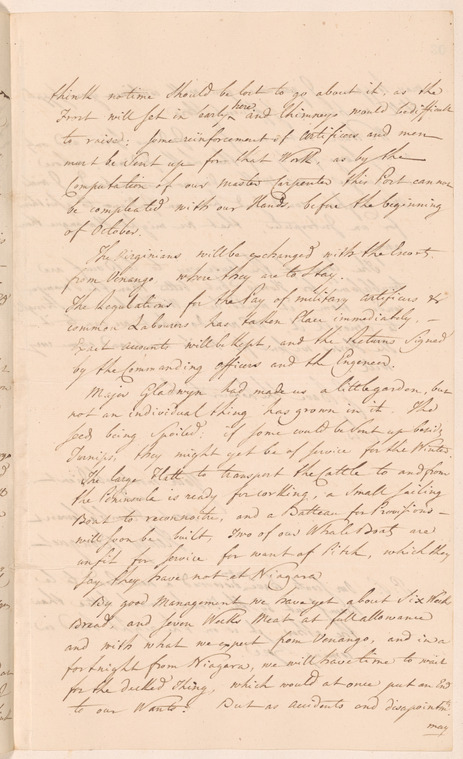 think no time Should be lost to go about it, as the
Frost will set in Early here and Chimneys would be difficult
to raise; Some reinforcement of Artificers and men
must be Sent up for that Work, as by the
Computation of our Master Carpenter this Post cannot
be compleated with our Hands, before the beginning
of October.
The Virginians will be exchanged with the Escort
from Venango where they are to Stay.
The Regulations for the Pay of military Artificers &c
common Labourers has taken Place immediately, –
Exact accounts will be kept, and the Returns Signed
by the Commanding officers and the Engeneer.
Major Gladwyn had made us a little garden, but
not an individual thing has grown in it. The
Seed being Spoiled; if Some would be Sent up beside
Turnips, they might yet be of Service for the Winter.
The large Flatt to transport the Cattle to and from
the Peninsula is ready for corking, a Small Sailing
Boat to reconnoitre, and a Batteau for Provisions –
will Soon be built, Two of our Whale Boats are
unfit for Service for want of Pitch, which they
Say they have not at Niagara
By good Management we have yet about Six Weeks
Bread, and Seven Weeks Meat at full allowance
and with what we expect from Venango, and in a
fortnight from Niagara, we will have time to wait
for the decked Thing, which would at once put an End
to our Wants! But as accidents and disapointmts
may